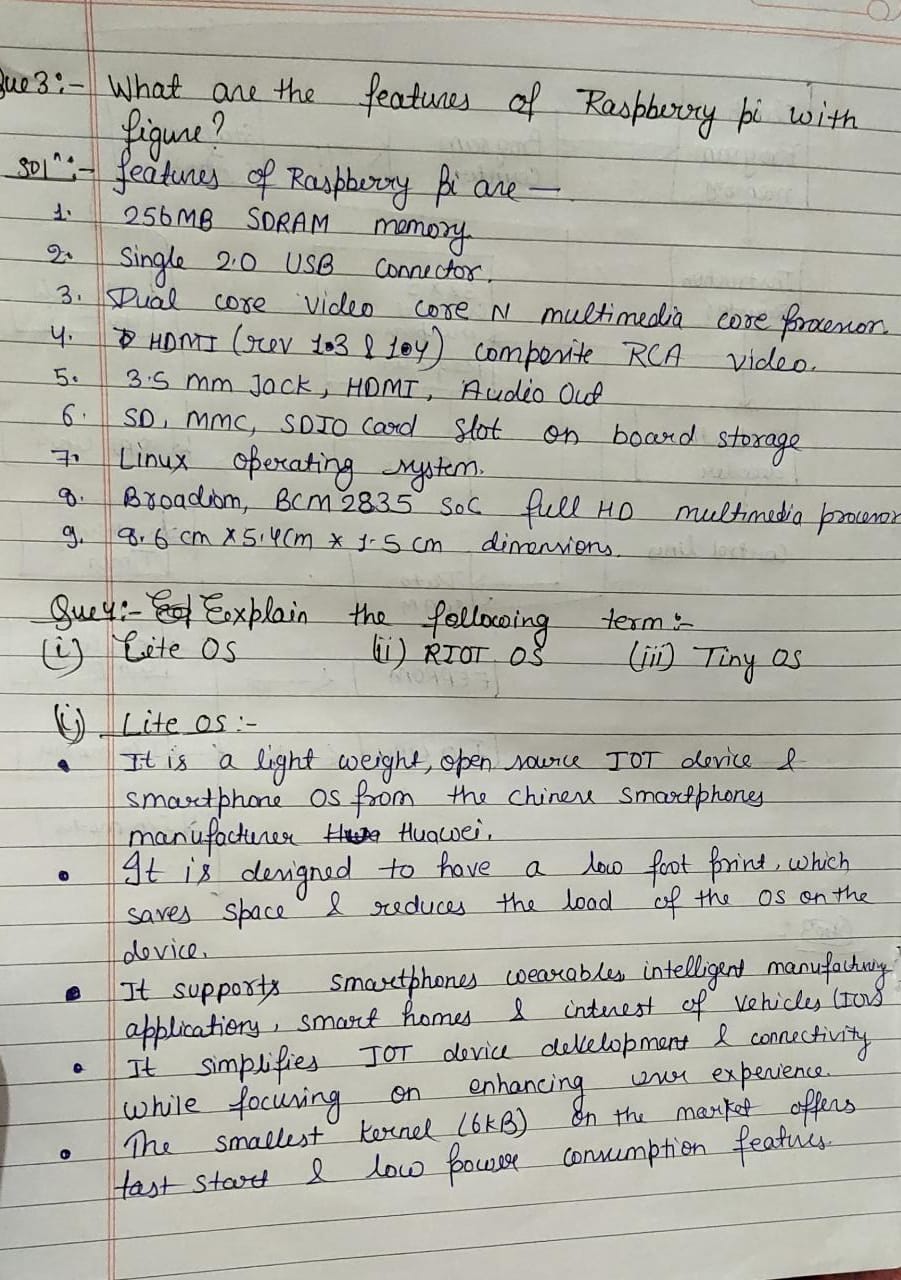 Que 3:- What are the features of Raspberry pi with
figure?
Solⁿ:- features of Raspberry Pi are —
1. 256MB SDRAM memory
2. Single 2.0 USB connector.
3. Dual core video core N multimedia core processor
4. HDMI (rev 1.3 & 1.4) composite RCA video.
5. 3.5 mm Jack, HDMI, Audio Out
6. SD, MMC, SDIO Card Slot on board storage
7. Linux operating system.
8. Broadcom, BCM 2835 SoC full HD multimedia processor
9. 8.6 cm x 5.4cm x 1.5 cm dimensions.
Que 4:- Explain the following term:-
(i) Lite OS (ii) RIOT OS (iii) Tiny OS
(i) Lite OS :-
• It is a light weight, open source IOT device &
smartphone OS from the chinese smartphones
manufacturer Huawei.
• It is designed to have a low foot print, which
saves space & reduces the load of the OS on the
device.
• It supports smartphones wearables intelligent manufacturing
applications, smart homes & interest of vehicles (IOV)
• It simplifies IOT device development & connectivity
while focusing on enhancing user experience.
• The smallest Kernel (6KB) on the market offers
fast start & low power consumption features.